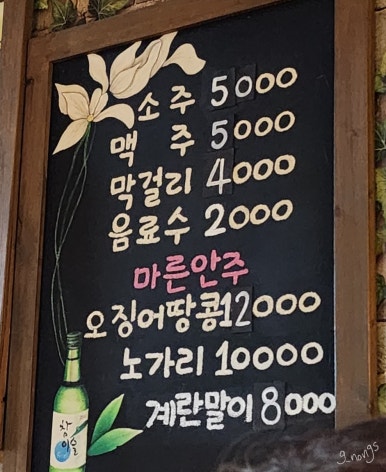 소주 5000
맥 주 5000
막걸리 4000
음료수 2000
마른안주
오징어땅콩 12000
노가리 10000
계란말이 8000
참이슬
g_nongs